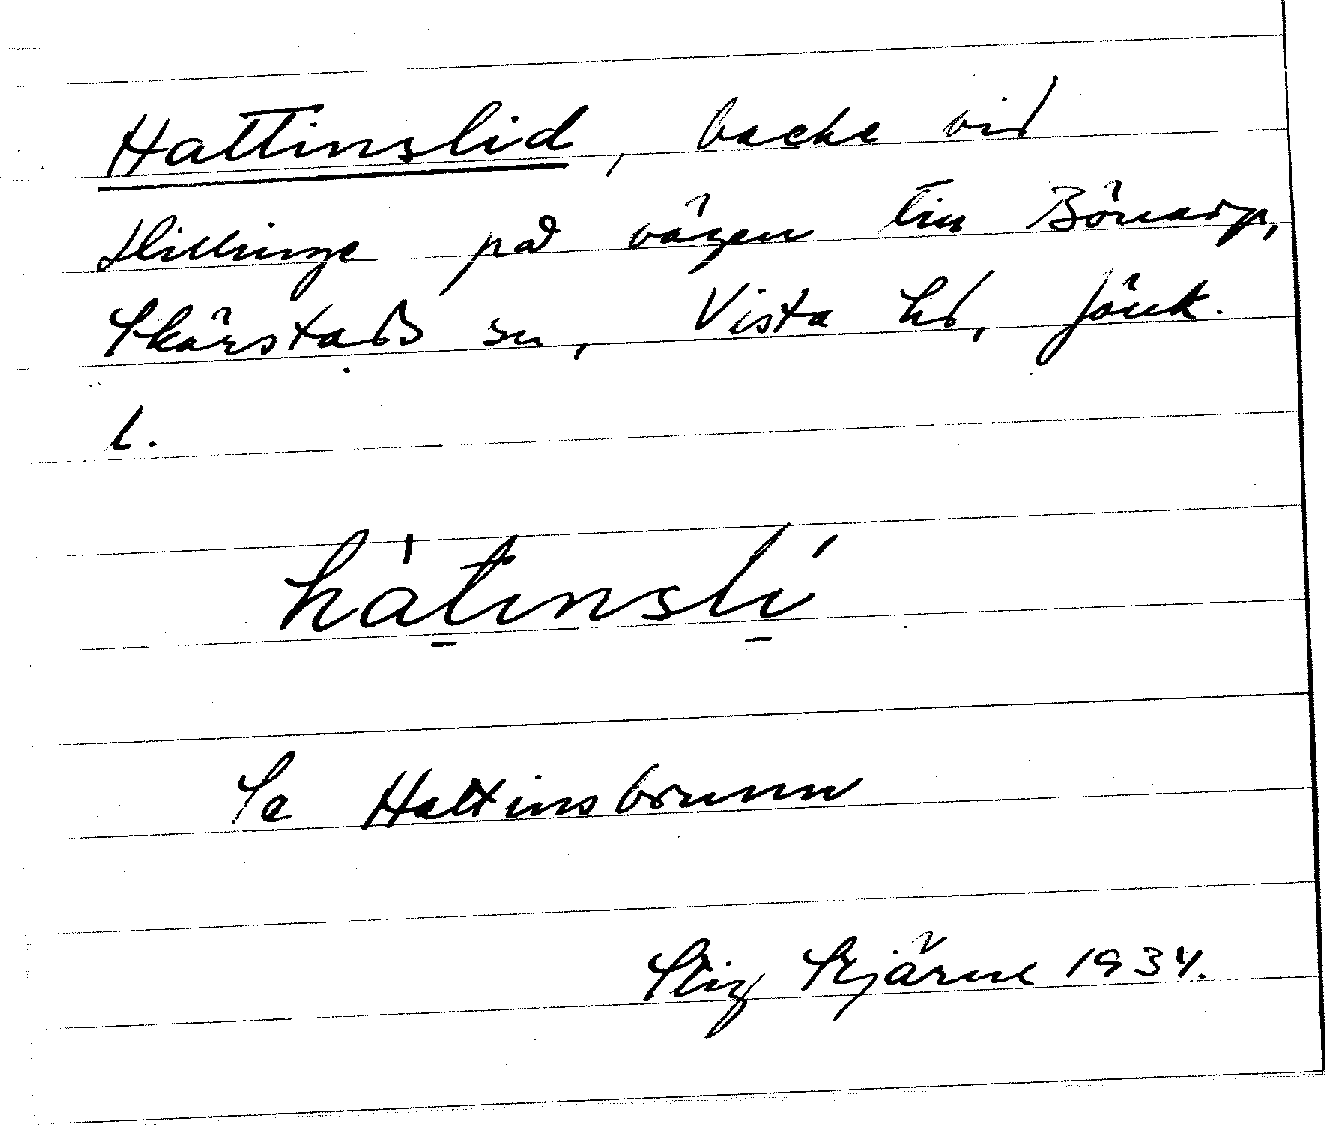 Hattinslid, backe vid
Hillinge på vägen till Bönarp,
Skärstads sn, Vista hd, Jönk.
l.
hàtinslí
Se Hattinsbrunn
Stig Stjärne 1934.